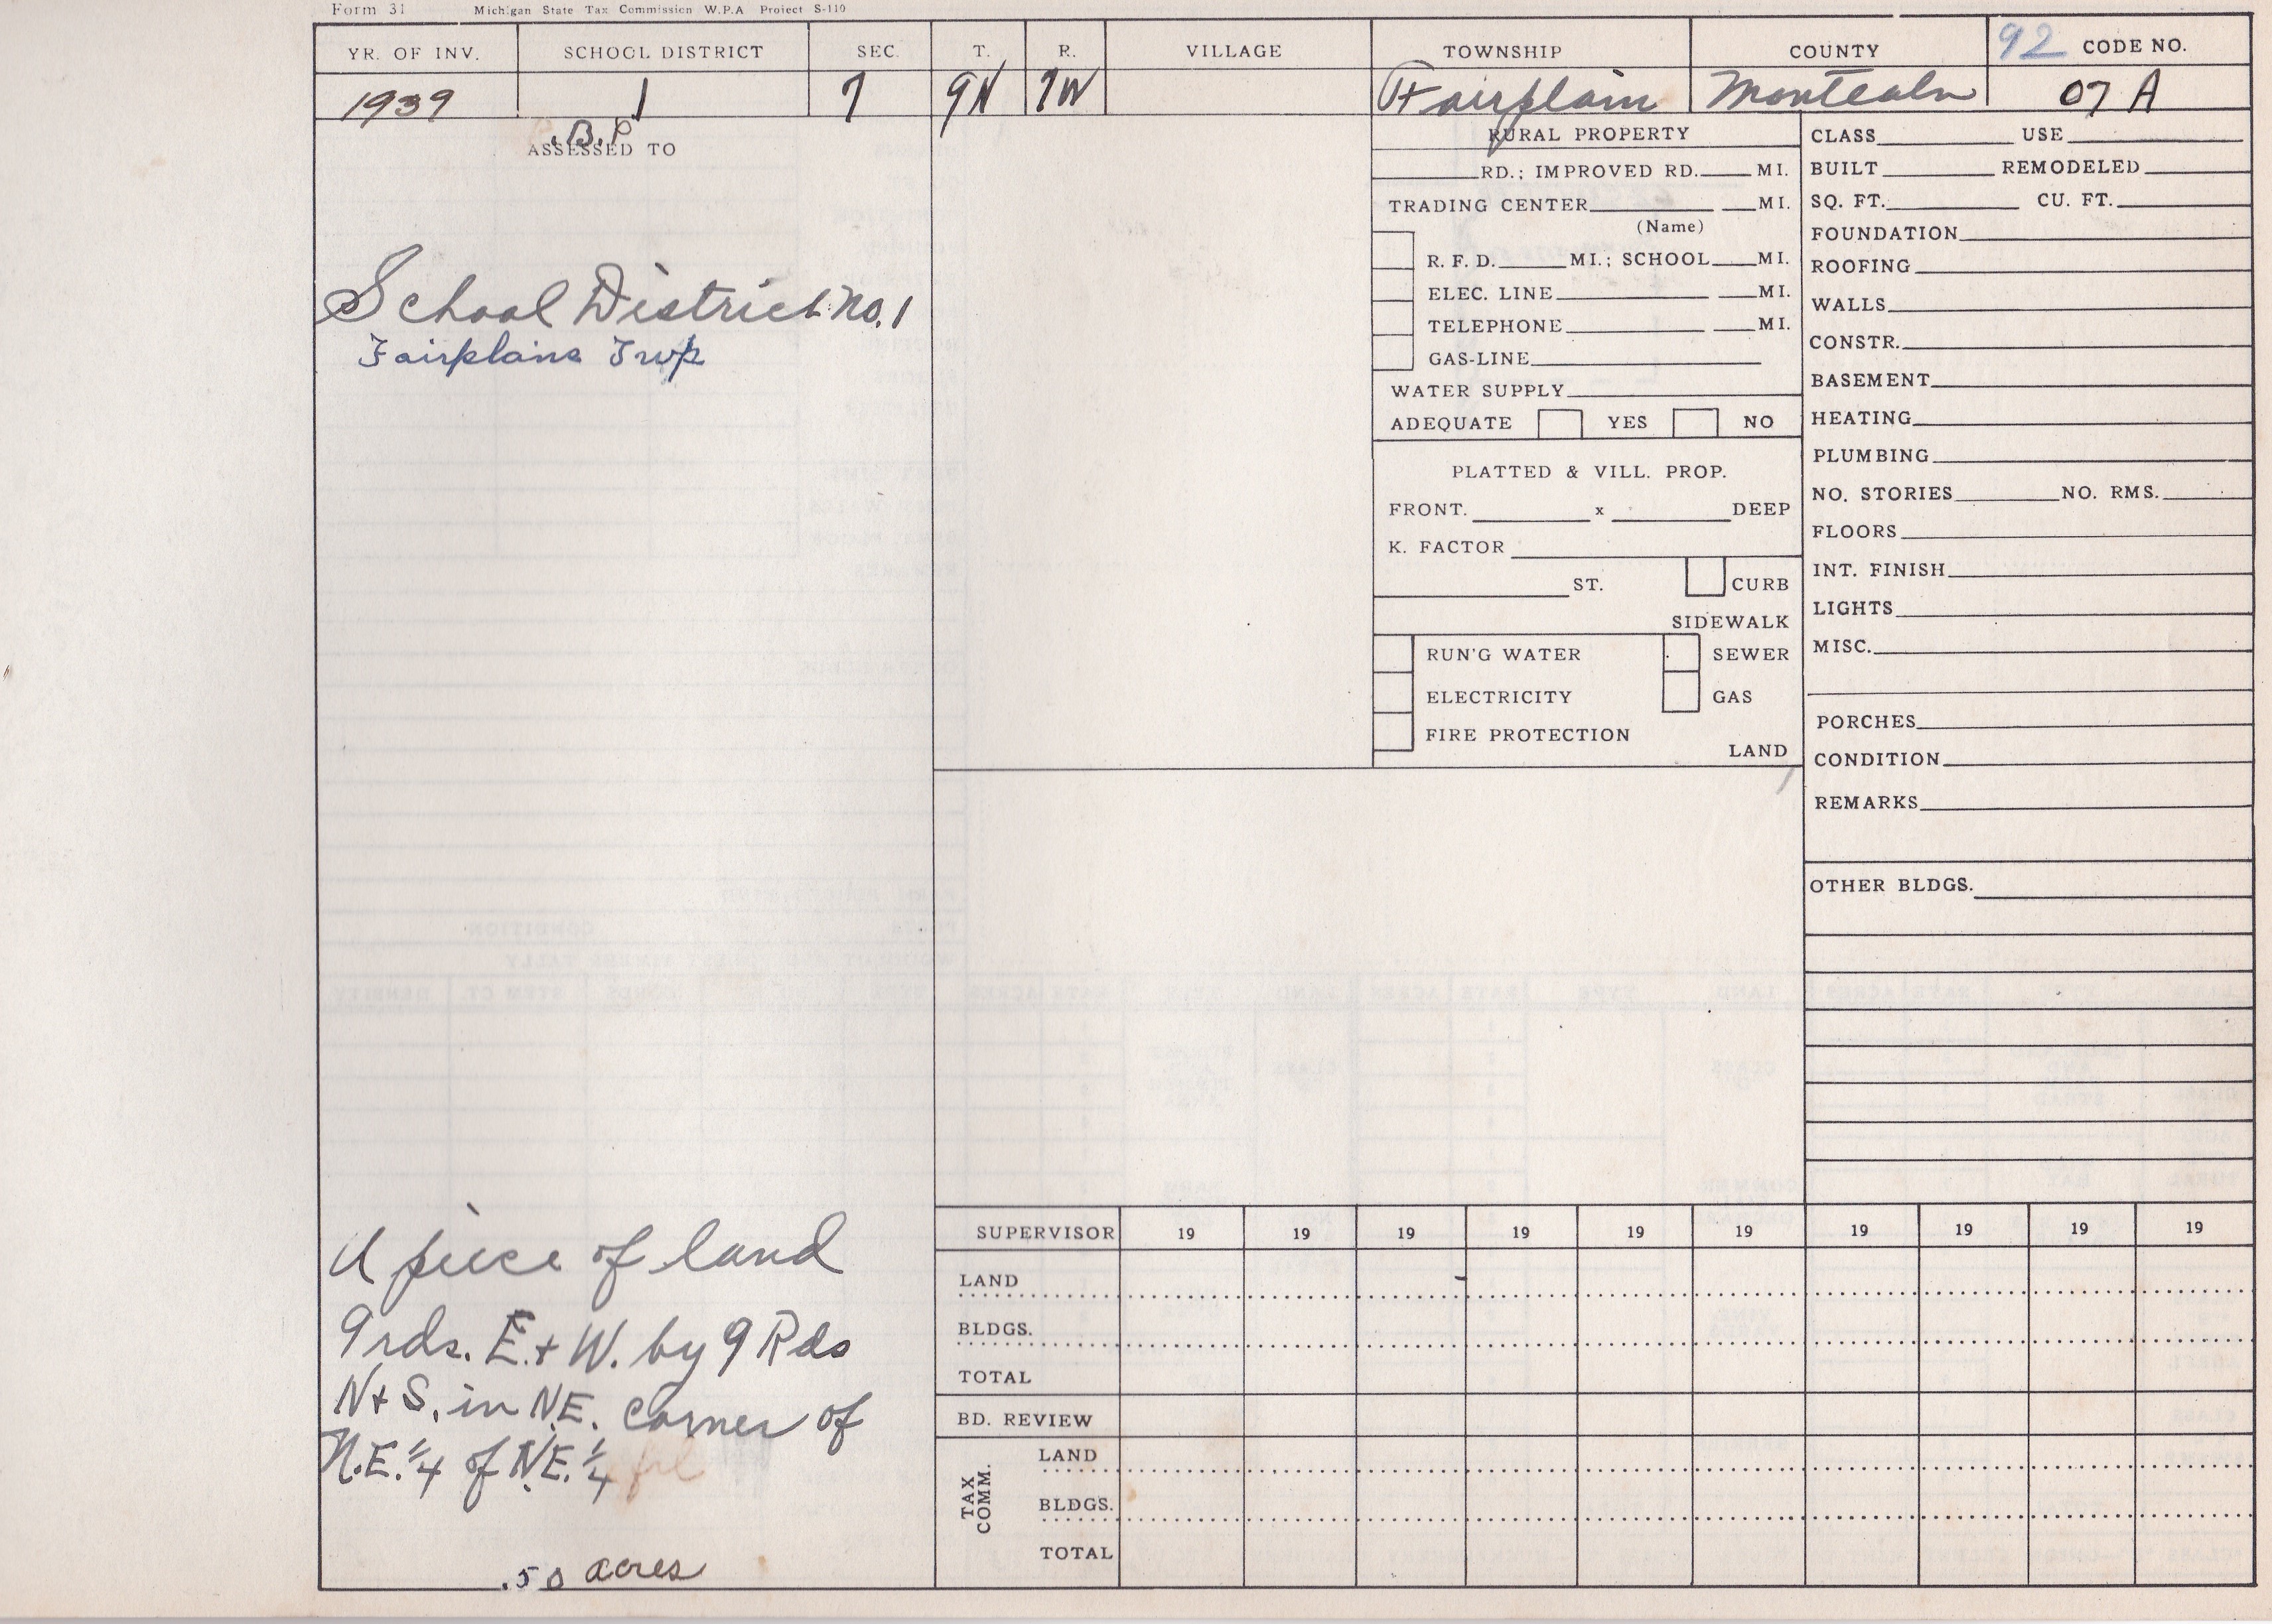 Form 31 Michigan State Tax Commission W.P.A Project S-110
YR. OF INV. SCHOOL DISTRICT SEC. T. R. VILLAGE TOWNSHIP COUNTY 92 CODE NO.
1939 1 7 9N 7W Fairplain Montcalm 07 A
.B.P
ASSESSED TO
School District No. 1
Fairplains Twp
A piece of land
9 rds. E. + W. by 9 Rds
N + S. in N.E. corner of
N.E. 1/4 of N.E. 1/4
.50 acres
RURAL PROPERTY
RD.; IMPROVED RD. MI.
TRADING CENTER MI.
(Name)
R. F. D. MI.; SCHOOL MI.
ELEC. LINE MI.
TELEPHONE MI.
GAS-LINE
WATER SUPPLY
ADEQUATE YES NO
PLATTED & VILL. PROP.
FRONT. x DEEP
K. FACTOR
ST. CURB
SIDEWALK
RUN'G WATER SEWER
ELECTRICITY GAS
FIRE PROTECTION
LAND
CLASS USE
BUILT REMODELED
SQ. FT. CU. FT.
FOUNDATION
ROOFING
WALLS
CONSTR.
BASEMENT
HEATING
PLUMBING
NO. STORIES NO. RMS.
FLOORS
INT. FINISH
LIGHTS
MISC.
PORCHES
CONDITION
REMARKS
OTHER BLDGS.
SUPERVISOR 19 19 19 19 19 19 19 19 19 19
LAND
BLDGS.
TOTAL
BD. REVIEW
TAX COMM.
LAND
BLDGS.
TOTAL